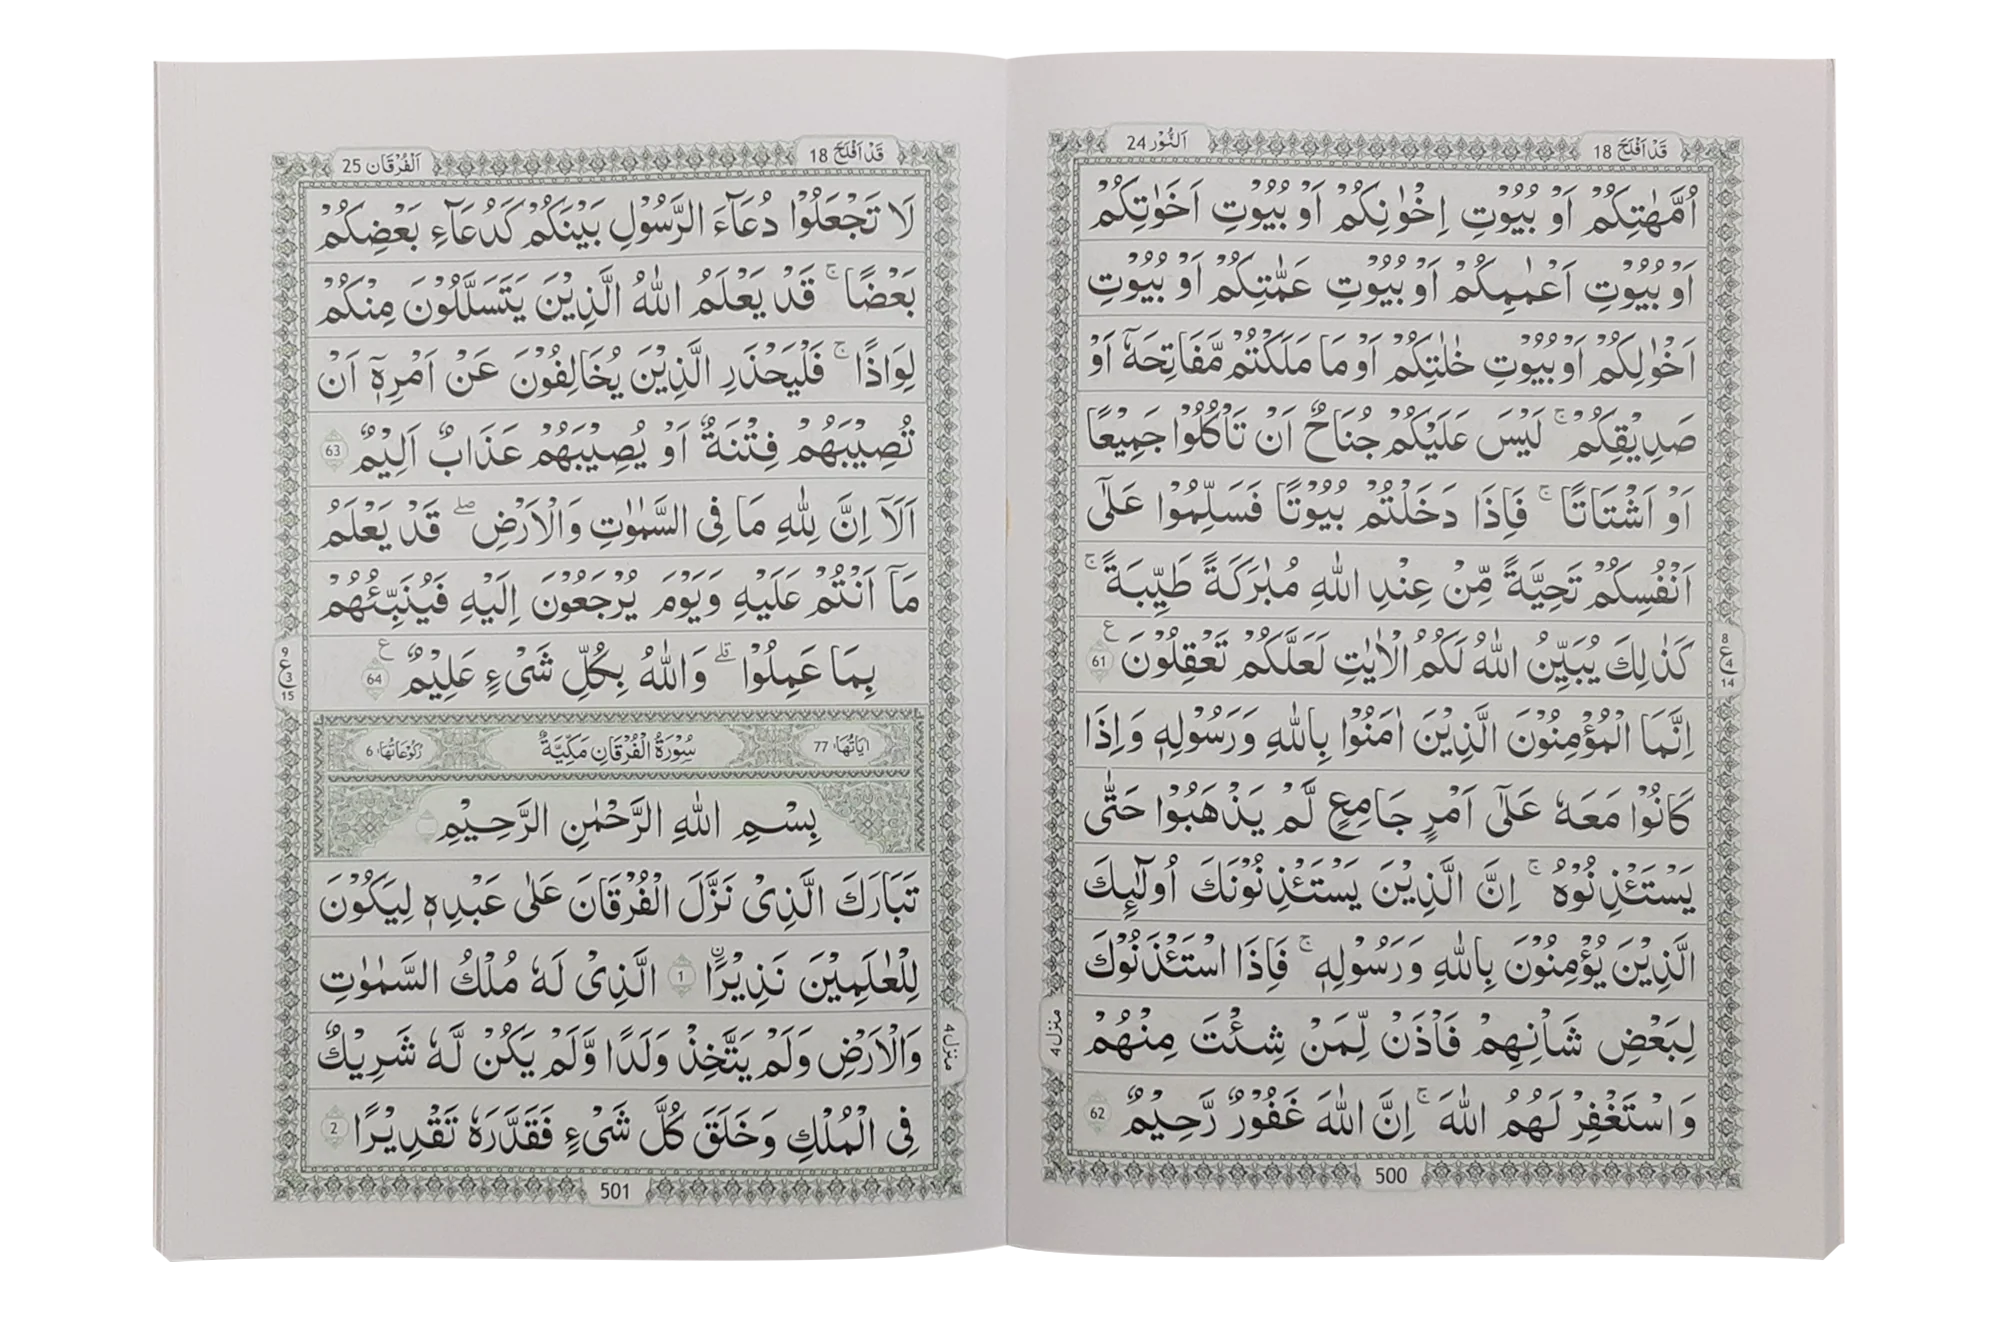 قَدْ اَفْلَحَ 18
اَلنُّوْر 24
اُمَّهٰتِكُمْ اَوْ بُيُوْتِ اِخْوَانِكُمْ اَوْ بُيُوْتِ اَخَوٰتِكُمْ
اَوْ بُيُوْتِ اَعْمَامِكُمْ اَوْ بُيُوْتِ عَمّٰتِكُمْ اَوْ بُيُوْتِ
اَخْوَالِكُمْ اَوْ بُيُوْتِ خٰلٰتِكُمْ اَوْ مَا مَلَكْتُمْ مَّفَاتِحَهٗۤ اَوْ
صَدِيْقِكُمْ ۚ لَيْسَ عَلَيْكُمْ جُنَاحٌ اَنْ تَاْكُلُوْا جَمِيْعًا
اَوْ اَشْتَاتًا ۚ فَاِذَا دَخَلْتُمْ بُيُوْتًا فَسَلِّمُوْا عَلٰۤى
اَنْفُسِكُمْ تَحِيَّةً مِّنْ عِنْدِ اللّٰهِ مُبٰرَكَةً طَيِّبَةً ۚ
كَذٰلِكَ يُبَيِّنُ اللّٰهُ لَكُمُ الْاٰيٰتِ لَعَلَّكُمْ تَعْقِلُوْنَ ع 61
8
ع 4
14
اِنَّمَا الْمُؤْمِنُوْنَ الَّذِيْنَ اٰمَنُوْا بِاللّٰهِ وَرَسُوْلِهٖ وَاِذَا
كَانُوْا مَعَهٗ عَلٰۤى اَمْرٍ جَامِعٍ لَّمْ يَذْهَبُوْا حَتّٰى
يَسْتَـْٔذِنُوْهُ ۚ اِنَّ الَّذِيْنَ يَسْتَـْٔذِنُوْنَكَ اُولٰٓئِكَ
الَّذِيْنَ يُؤْمِنُوْنَ بِاللّٰهِ وَرَسُوْلِهٖ ۚ فَاِذَا اسْتَـْٔذَنُوْكَ
لِبَعْضِ شَاْنِهِمْ فَاْذَنْ لِّمَنْ شِئْتَ مِنْهُمْ
منزل 4
وَاسْتَغْفِرْ لَهُمُ اللّٰهَ ۚ اِنَّ اللّٰهَ غَفُوْرٌ رَّحِيْمٌ 62
500
قَدْ اَفْلَحَ 18
اَلْفُرْقَان 25
لَا تَجْعَلُوْا دُعَآءَ الرَّسُوْلِ بَيْنَكُمْ كَدُعَآءِ بَعْضِكُمْ
بَعْضًا ۚ قَدْ يَعْلَمُ اللّٰهُ الَّذِيْنَ يَتَسَلَّلُوْنَ مِنْكُمْ
لِوَاذًا ۚ فَلْيَحْذَرِ الَّذِيْنَ يُخَالِفُوْنَ عَنْ اَمْرِهٖۤ اَنْ
تُصِيْبَهُمْ فِتْنَةٌ اَوْ يُصِيْبَهُمْ عَذَابٌ اَلِيْمٌ 63
اَلَاۤ اِنَّ لِلّٰهِ مَا فِى السَّمٰوٰتِ وَالْاَرْضِ ۖ قَدْ يَعْلَمُ
مَاۤ اَنْتُمْ عَلَيْهِ وَيَوْمَ يُرْجَعُوْنَ اِلَيْهِ فَيُنَبِّئُهُمْ
بِمَا عَمِلُوْا ۗ وَاللّٰهُ بِكُلِّ شَىْءٍ عَلِيْمٌ ع 64
9
ع 3
15
اٰيَاتُهَا، 77
سُوْرَةُ الْفُرْقَانِ مَكِّيَّةٌ
رُكُوْعَاتُهَا، 6
بِسْمِ اللّٰهِ الرَّحْمٰنِ الرَّحِيْمِ
تَبَارَكَ الَّذِىْ نَزَّلَ الْفُرْقَانَ عَلٰى عَبْدِهٖ لِيَكُوْنَ
لِلْعٰلَمِيْنَ نَذِيْرًا 1 ۨ الَّذِىْ لَهٗ مُلْكُ السَّمٰوٰتِ
منزل 4
وَالْاَرْضِ وَلَمْ يَتَّخِذْ وَلَدًا وَّلَمْ يَكُنْ لَّهٗ شَرِيْكٌ
فِى الْمُلْكِ وَخَلَقَ كُلَّ شَىْءٍ فَقَدَّرَهٗ تَقْدِيْرًا 2
501